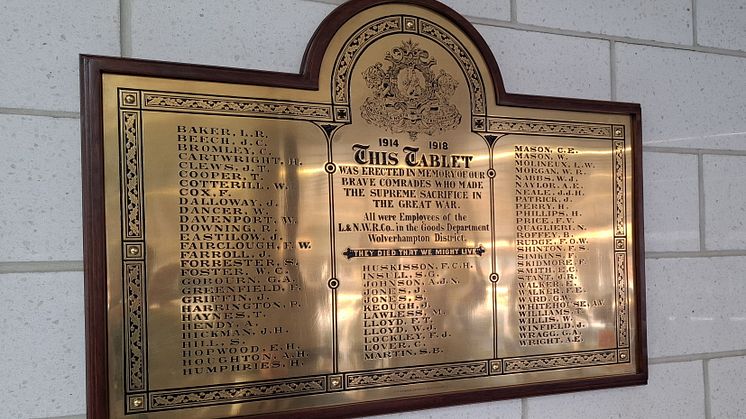 1914 1918
THIS TABLET
WAS ERECTED IN MEMORY OF OUR
BRAVE COMRADES WHO MADE
THE SUPREME SACRIFICE IN
THE GREAT WAR.
All were Employees of the
L.& N.W.R.Co. in the Goods Department
Wolverhampton District.
THEY DIED THAT WE MIGHT LIVE
BAKER, L.R.
BEECH, J.C.
BROMLEY, C.
CARTWRIGHT, H.
CLEWS, J.T.
COOPER, T.
COTTERILL, W.
COX, F.
DALLOWAY, J.
DANCER, W.
DAVENPORT, W.
DOWNING, P.
EASTHOPE, J.
FAIRCLOUGH, F.W.
FARROLL, J.
FORRESTER, S.
FOSTER, W.C.
GOBOURN, G.A.
GREENFIELD, F.
GRIFFIN, J.
HARRINGTON, P.
HAYNES, T.
HENDY, A.
HICKMAN, J.H.
HILL, S.
HOPWOOD, E.H.
HOUGHTON, A.H.
HUMPHRIES, H.
HUSKISSON, F.C.H.
INSULL, S.G.
JOHNSON, A.J.N.
JONES, J.
JONES, S.
KEOUGH, J.
LAWLESS, M.
LLOYD, F.T.
LLOYD, W.J.
LOCKLEY, F.J.
LOVER, C.
MARTIN, S.B.
MASON, C.E.
MASON, W.
MOLINEUX, L.W.
MORGAN, W.R.
NABBS, W.J.
NAYLOR, A.E.
NEALE, J.J.H.
PATRICK, J.
PERRY, H.
PHILLIPS, H.
PRICE, F.V.
QUAGLIER, N.
ROFFEY, B.
RUDGE, F.O.W.
SHINTON, F.S.
SIMKINS, F.
SKIDMORE, F.
SMITH, E.C.
STANLEY, R.
WALKER, E.
WALKER, F.E.
WARD, G.A.
WHITEHOUSE, A.W.
WILLIAMS, T.
WILLIS, W.
WINFIELD, J.
WRAGG, G.A.
WRIGHT, A.E.